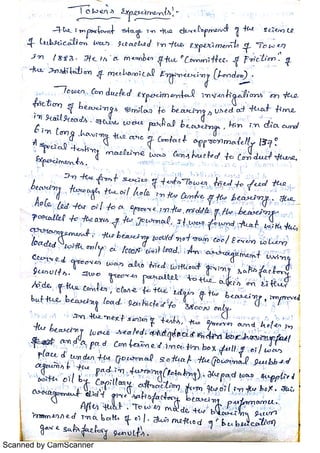 Tower's Experiments:-
The Important stage in the development of the science
of lubrication was reached in the experiments of Tower
In 1883. He is a member of the "Committee of Friction of
the Institution of mechanical Engineering (London).
Tower, Conducted Experimental investigations on the
friction of bearings similar to bearings used at that time
in railroads. These were partial bearings, 4in in dia and
6 in long having the arc of Contact approximatelly 157°.
A special testing machine was constructed to Conduct these
Experiments.
In the first series of tests Tower, tried to feed the
bearing, through the oil hole in the centre of the bearing. The
hole led the oil to a groove in the middle of the bearing
parallel to the axis of the Journal. It was found that with this
arrangement, the bearing would not run cool Even when
loaded with only a load. An arrangement using
Curved grooves was also tried without giving satisfactory
results. Two grooves parallel to the axis on either
side of the Center, close to the edges of the bearing, improved
but the bearing load restricted to only.
In the next series of tests, the grooves and holes in
the bearing were sealed
and a pad Contained in a tin box full of oil was
placed under the Journal so that the Journal rubbed
against the pad in turning (Rotating). The pad was supplied
with oil by Capillary attraction from the oil in the box. This
arrangement didn't give satisfactory bearing performance.
After that, Tower made the bearing runn
immersed in a bath of oil. This method of lubrication
gave satisfactory results.
Scanned by CamScanner